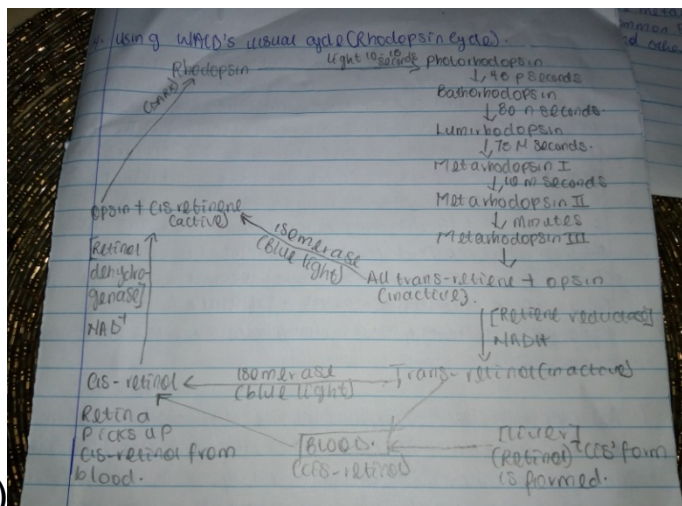 using WALD's visual cycle (Rhodopsin Cycle).
Rhodopsin
light 10 seconds photorhodopsin
↓ 40 p seconds
Bathorhodopsin
↓ 80 n seconds.
Lumirhodopsin
↓ 70 M seconds.
Metarhodopsin I
↓ 10 m seconds
Metarhodopsin II
↓ minutes
Metarhodopsin III
opsin + cis retinene
(active)
isomerase
(blue light)
All trans-retiene + opsin
(inactive).
[Retinol
dehydro-
genase]
NAD+
[Retiene reductase]
NADH
Cis-retinol
isomerase
(blue light)
Trans-retinol (inactive)
Retina
picks up
cis-retinol from
blood.
[BLOOD.
(cis-retinol)
[Liver]
(Retinol) - 'cis' form
is formed.